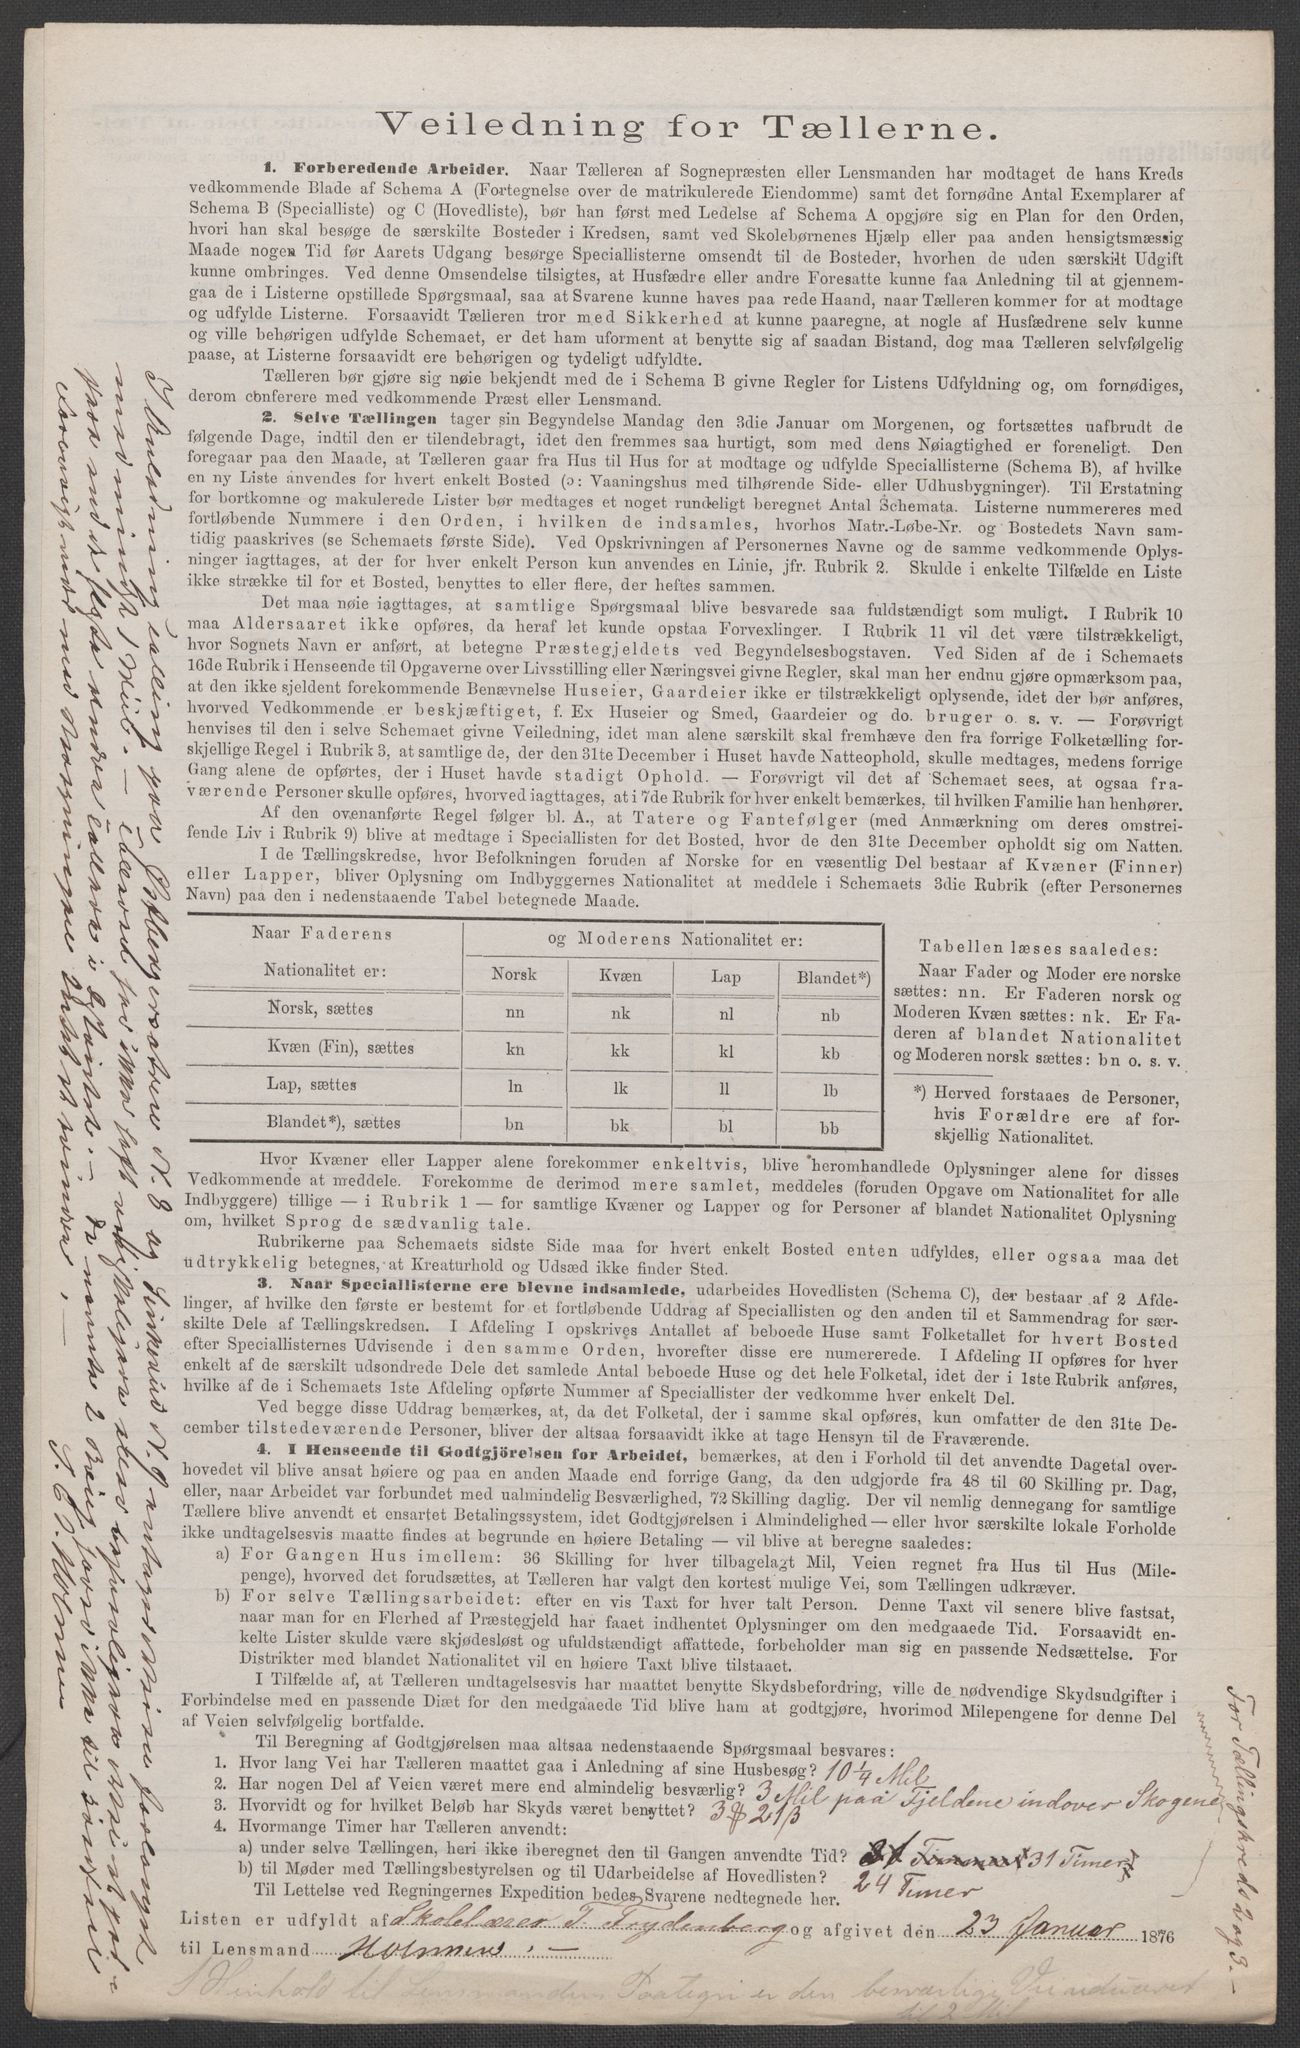 Veiledning for Tællerne.
1. Forberedende Arbeider. Naar Tælleren af Sognepræsten eller Lensmanden har modtaget de hans Kreds
vedkommende Blade af Schema A (Fortegnelse over de matrikulerede Eiendomme) samt det fornødne Antal Exemplarer af
Schema B (Specialliste) og C (Hovedliste), bør han først med Ledelse af Schema A opgjøre sig en Plan for den Orden,
hvori han skal besøge de særskilte Bosteder i Kredsen, samt ved Skolebørnenes Hjælp eller paa anden hensigtsmæssig
Maade nogen Tid før Aarets Udgang besørge Speciallisterne omsendt til de Bosteder, hvorhen de uden særskilt Udgift
kunne ombringes. Ved denne Omsendelse tilsigtes, at Husfædre eller andre Foresatte kunne faa Anledning til at gjennem-
gaa de i Listerne opstillede Spørgsmaal, saa at Svarene kunne haves paa rede Haand, naar Tælleren kommer for at modtage
og udfylde Listerne. Forsaavidt Tælleren tror med Sikkerhed at kunne paaregne, at nogle af Husfædrene selv kunne
og ville behørigen udfylde Schemaet, er det ham uforment at benytte sig af saadan Bistand, dog maa Tælleren selvfølgelig
paase, at Listerne forsaavidt ere behørigen og tydeligt udfyldte.
Tælleren bør gjøre sig nøie bekjendt med de i Schema B givne Regler for Listens Udfyldning og, om fornødiges,
derom conferere med vedkommende Præst eller Lensmand.
2. Selve Tællingen tager sin Begyndelse Mandag den 3die Januar om Morgenen, og fortsættes uafbrudt de
følgende Dage, indtil den er tilendebragt, idet den fremmes saa hurtigt, som med dens Nøiagtighed er foreneligt. Den
foregaar paa den Maade, at Tælleren gaar fra Hus til Hus for at modtage og udfylde Speciallisterne (Schema B), af hvilke
en ny Liste anvendes for hvert enkelt Bosted (ɔ: Vaaningshus med tilhørende Side- eller Udhusbygninger). Til Erstatning
for bortkomne og makulerede Lister bør medtages et noget rundeligt beregnet Antal Schemata. Listerne nummereres med
fortløbende Nummere i den Orden, i hvilken de indsamles, hvorhos Matr.-Løbe-Nr. og Bostedets Navn sam-
tidig paaskrives (se Schemaets første Side). Ved Opskrivningen af Personernes Navne og de samme vedkommende Oplys-
ninger iagttages, at der for hver enkelt Person kun anvendes en Linie, jfr. Rubrik 2. Skulde i enkelte Tilfælde en Liste
ikke strække til for et Bosted, benyttes to eller flere, der heftes sammen.
Det maa nøie iagttages, at samtlige Spørgsmaal blive besvarede saa fuldstændigt som muligt. I Rubrik 10
maa Aldersaaret ikke opføres, da heraf let kunde opstaa Forvexlinger. I Rubrik 11 vil det være tilstrækkeligt,
hvor Sognets Navn er anført, at betegne Præstegjeldets ved Begyndelsesbogstaven. Ved Siden af de i Schemaets
16de Rubrik i Henseende til Opgaverne over Livsstilling eller Næringsvei givne Regler, skal man her endnu gjøre opmærksom paa,
at den ikke sjeldent forekommende Benævnelse Huseier, Gaardeier ikke er tilstrækkeligt oplysende, idet der bør anføres,
hvorved Vedkommende er beskjæftiget, f. Ex Huseier og Smed, Gaardeier og do. bruger o. s. v. — Forøvrigt
henvises til den i selve Schemaet givne Veiledning, idet man alene særskilt skal fremhæve den fra forrige Folketælling for-
skjellige Regel i Rubrik 3, at samtlige de, der den 31te December i Huset havde Natteophold, skulle medtages, medens forrige
Gang alene de opførtes, der i Huset havde stadigt Ophold. — Forøvrigt vil det af Schemaet sees, at ogsaa fra-
værende Personer skulle opføres, hvorved iagttages, at i 7de Rubrik for hver enkelt bemærkes, til hvilken Familie han henhører.
Af den ovenanførte Regel følger bl. A., at Tatere og Fantefølger (med Anmærkning om deres omstrei-
fende Liv i Rubrik 9) blive at medtage i Speciallisten for det Bosted, hvor de den 31te December opholdt sig om Natten.
I de Tællingskredse, hvor Befolkningen foruden af Norske for en væsentlig Del bestaar af Kvæner (Finner)
eller Lapper, bliver Oplysning om Indbyggernes Nationalitet at meddele i Schemaets 3die Rubrik (efter Personernes
Navn) paa den i nedenstaaende Tabel betegnede Maade.
Naar Faderens
Nationalitet er:
og Moderens Nationalitet er:
Norsk Kvæn Lap Blandet*)
Norsk, sættes nn nk nl nb
Kvæn (Fin), sættes kn kk kl kb
Lap, sættes ln lk ll lb
Blandet*), sættes bn bk bl bb
Tabellen læses saaledes:
Naar Fader og Moder ere norske
sættes: nn. Er Faderen norsk og
Moderen Kvæn sættes: nk. Er Fa-
deren af blandet Nationalitet
og Moderen norsk sættes: bn o. s. v.
*) Herved forstaaes de Personer,
hvis Forældre ere af for-
skjellig Nationalitet.
Hvor Kvæner eller Lapper alene forekommer enkeltvis, blive heromhandlede Oplysninger alene for disses
Vedkommende at meddele. Forekomme de derimod mere samlet, meddeles (foruden Opgave om Nationalitet for alle
Indbyggere) tillige — i Rubrik 1 — for samtlige Kvæner og Lapper og for Personer af blandet Nationalitet Oplysning
om, hvilket Sprog de sædvanlig tale.
Rubrikerne paa Schemaets sidste Side maa for hvert enkelt Bosted enten udfyldes, eller ogsaa maa det
udtrykkelig betegnes, at Kreaturhold og Udsæd ikke finder Sted.
3. Naar Speciallisterne ere blevne indsamlede, udarbeides Hovedlisten (Schema C), der bestaar af 2 Afde-
linger, af hvilke den første er bestemt for et fortløbende Uddrag af Speciallisten og den anden til et Sammendrag for sær-
skilte Dele af Tællingskredsen. I Afdeling I opskrives Antallet af beboede Huse samt Folketallet for hvert Bosted
efter Speciallisternes Udvisende i den samme Orden, hvorefter disse ere numererede. I Afdeling II opføres for hver
enkelt af de særskilt udsondrede Dele det samlede Antal beboede Huse og det hele Folketal, idet der i 1ste Rubrik anføres,
hvilke af de i Schemaets 1ste Afdeling opførte Nummer af Speciallister der vedkomme hver enkelt Del.
Ved begge disse Uddrag bemærkes, at, da det Folketal, der i samme skal opføres, kun omfatter de den 31te De-
cember tilstedeværende Personer, bliver der altsaa forsaavidt ikke at tage Hensyn til de Fraværende.
4. I Henseende til Godtgjörelsen for Arbeidet, bemærkes, at den i Forhold til det anvendte Dagetal over-
hovedet vil blive ansat høiere og paa en anden Maade end forrige Gang, da den udgjorde fra 48 til 60 Skilling pr. Dag,
eller, naar Arbeidet var forbundet med ualmindelig Besværlighed, 72 Skilling daglig. Der vil nemlig dennegang for samtlige
Tællere blive anvendt et ensartet Betalingssystem, idet Godtgjørelsen i Almindelighed — eller hvor særskilte lokale Forholde
ikke undtagelsesvis maatte findes at begrunde en høiere Betaling — vil blive at beregne saaledes:
a) For Gangen Hus imellem: 36 Skilling for hver tilbagelagt Mil, Veien regnet fra Hus til Hus (Mile-
penge), hvorved det forudsættes, at Tælleren har valgt den kortest mulige Vei, som Tællingen udkræver.
b) For selve Tællingsarbeidet: efter en vis Taxt for hver talt Person. Denne Taxt vil senere blive fastsat,
naar man for en Flerhed af Præstegjeld har faaet indhentet Oplysninger om den medgaaede Tid. Forsaavidt en-
kelte Lister skulde være skjødesløst og ufuldstændigt affattede, forbeholder man sig en passende Nedsættelse. For
Distrikter med blandet Nationalitet vil en høiere Taxt blive tilstaaet.
I Tilfælde af, at Tælleren undtagelsesvis har maattet benytte Skydsbefordring, ville de nødvendige Skydsudgifter i
Forbindelse med en passende Diæt for den medgaaede Tid blive ham at godtgjøre, hvorimod Milepengene for denne Del
af Veien selvfølgelig bortfalde.
Til Beregning af Godtgjørelsen maa altsaa nedenstaaende Spørgsmaal besvares:
1. Hvor lang Vei har Tælleren maattet gaa i Anledning af sine Husbesøg? 10 1/4 Mil
2. Har nogen Del af Veien været mere end almindelig besværlig? 3 Mil paa Fjeldene indover Skogene
3. Hvorvidt og for hvilket Beløb har Skyds været benyttet?
4. Hvormange Timer har Tælleren anvendt:
a) under selve Tællingen, heri ikke iberegnet den til Gangen anvendte Tid? 31 Timer
b) til Møder med Tællingsbestyrelsen og til Udarbeidelse af Hovedlisten? 24 Timer
Til Lettelse ved Regningernes Expedition bedes Svarene nedtegnede her.
Listen er udfyldt af Skolelærer T. Frydenberg og afgivet den 23 Januar 1876
til Lensmand Holmen. —
For Tællingskreds 2 og 3. —